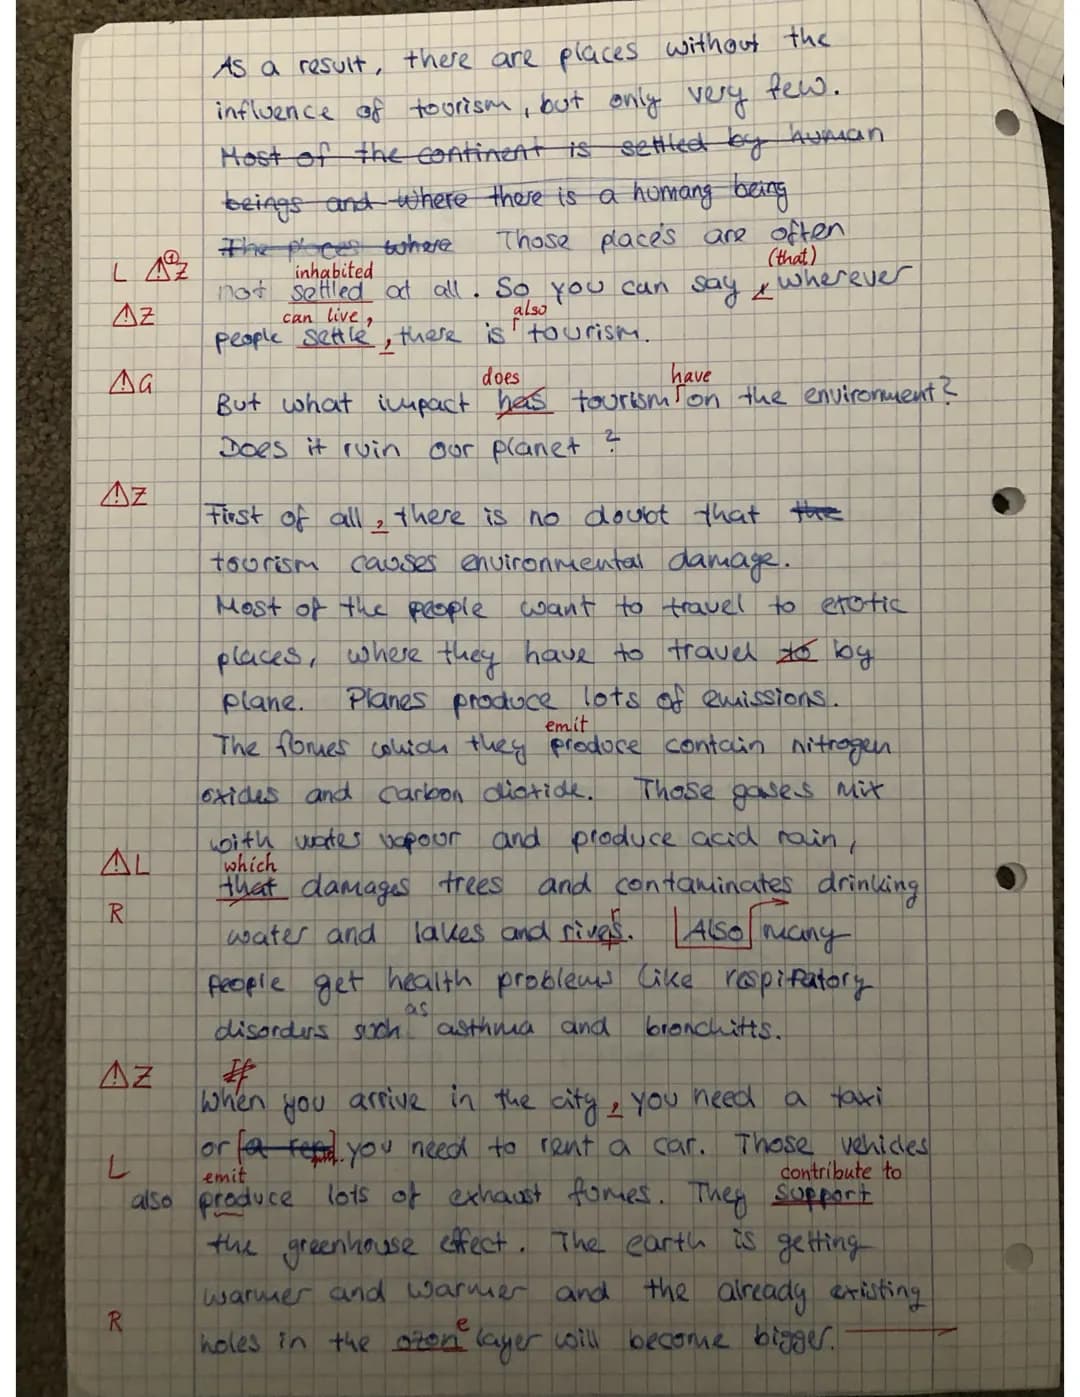 As a result, there are places without the
influence of tourism, but only very few.
Most of the continent is settled by human
beings and where there is a humang being
The places where Those places are often
(that)
L ⚠① Z
inhabited
not settled at all. So you can say, wherever
⚠Z
can live,
also
people settle, there is tourism.
⚠G
does
have
But what impact has tourism on the environment?
Does it ruin our planet?
⚠Z
First of all, there is no doubt that the
tourism causes environmental damage.
Most of the people want to travel to exotic
places, where they have to travel to by
plane. Planes produce lots of emissions.
emit
The fomes which they produce contain nitrogen
oxides and carbon dioxide. Those gases mix
with water vapour and produce acid rain,
⚠L
which
that damages trees and contaminates drinking
R
water and lakes and rivers. Also many
people get health problems like respiratory
as
disorders such asthma and bronchitts.
⚠Z
If
When you arrive in the city, you need a taxi
or a ren you need to rent a car. Those vehicles
L
emit
contribute to
also produce lots of exhaust fumes. They support
the greenhouse effect. The earth is getting
warmer and warmer and the already existing
R
e
holes in the ozon layer will become bigger.